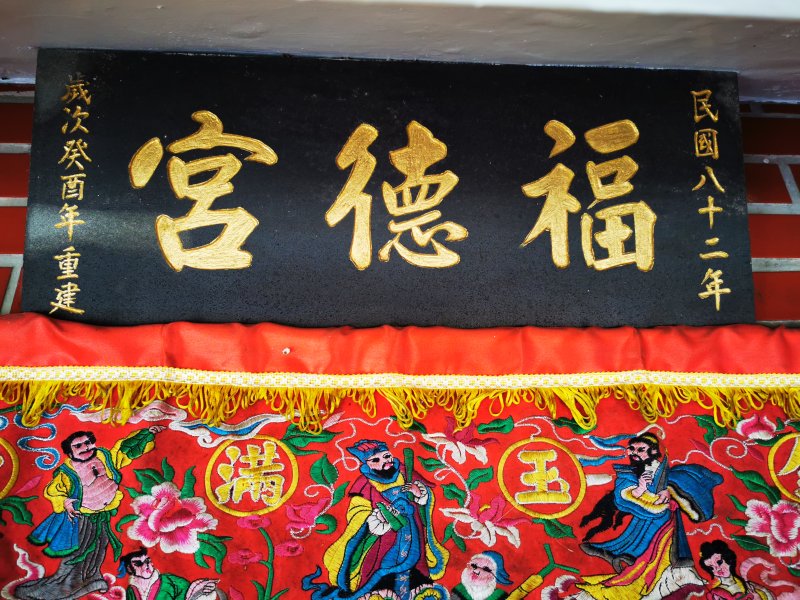 民國八十二年
福德宮
歲次癸酉年重建
玉
滿